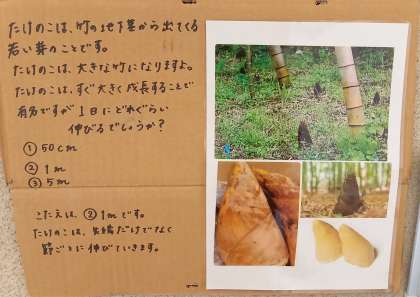 たけのこは、竹の地下茎から出てくる
若い芽のことです。
たけのこは、大きな竹になりますよ。
たけのこは、すぐ大きく成長することで
有名ですが1日にどれぐらい
伸びるでしょうか?
① 50cm
② 1m
③ 5m
こたえは、② 1mです。
たけのこは、先端だけでなく
節ごとに伸びていきます。